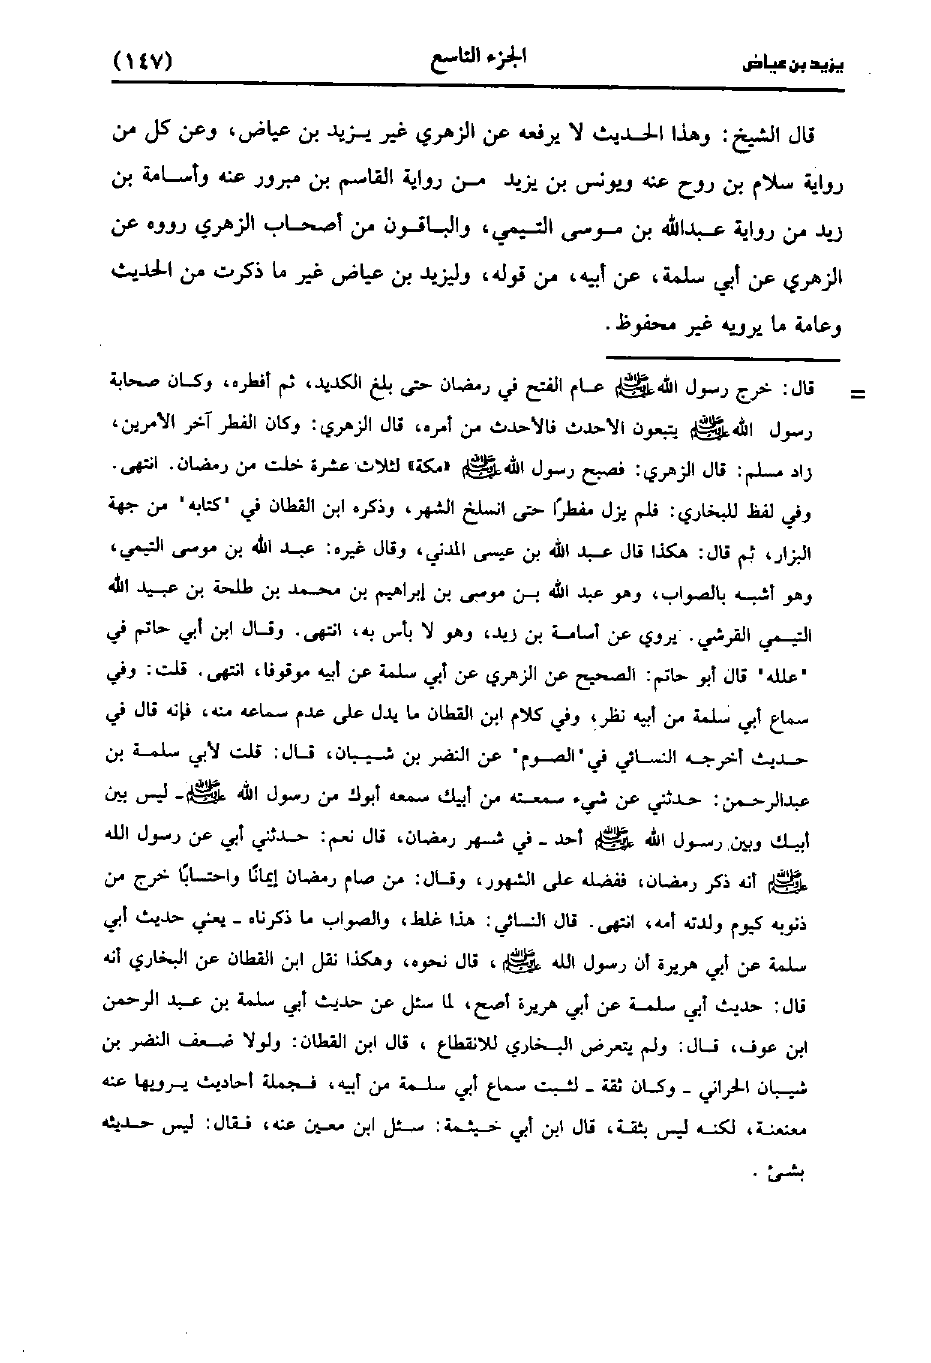 يزيد بن عياض
الجزء التاسع
(١٤٧)
قال الشيخ: وهذا الحديث لا يرفعه عن الزهري غير يزيد بن عياض، وعن كل من
رواية سلام بن روح عنه ويونس بن يزيد من رواية القاسم بن مبرور عنه وأسامة بن
زيد من رواية عبدالله بن موسى التيمي، والباقون من أصحاب الزهري رووه عن
الزهري عن أبي سلمة، عن أبيه، من قوله، وليزيد بن عياض غير ما ذكرت من الحديث
وعامة ما يرويه غير محفوظ.
= قال: خرج رسول الله ﷺ عام الفتح في رمضان حتى بلغ الكديد، ثم أفطره، وكان صحابة
رسول الله ﷺ يتبعون الأحدث فالأحدث من أمره، قال الزهري: وكان الفطر آخر الأمرين،
زاد مسلم: قال الزهري: فصبح رسول الله ﷺ «مكة» لثلاث عشرة خلت من رمضان. انتهى.
وفي لفظ للبخاري: فلم يزل مفطرًا حتى انسلخ الشهر، وذكره ابن القطان في "كتابه" من جهة
البزار، ثم قال: هكذا قال عبد الله بن عيسى المدني، وقال غيره: عبد الله بن موسى التيمي،
وهو أشبه بالصواب، وهو عبد الله بن موسى بن إبراهيم بن محمد بن طلحة بن عبيد الله
التيمي القرشي. يروي عن أسامة بن زيد، وهو لا بأس به، انتهى. وقال ابن أبي حاتم في
"علله" قال أبو حاتم: الصحيح عن الزهري عن أبي سلمة عن أبيه موقوفا، انتهى. قلت: وفي
سماع أبي سلمة من أبيه نظر، وفي كلام ابن القطان ما يدل على عدم سماعه منه، فإنه قال في
حديث أخرجه النسائي في "الصوم" عن النضر بن شيبان، قال: قلت لأبي سلمة بن
عبدالرحمن: حدثني عن شيء سمعته من أبيك سمعه أبوك من رسول الله ﷺ ـ ليس بين
أبيك وبين رسول الله ﷺ أحد ـ في شهر رمضان، قال نعم: حدثني أبي عن رسول الله
ﷺ أنه ذكر رمضان، ففضله على الشهور، وقال: من صام رمضان إيمانًا واحتسابًا خرج من
ذنوبه كيوم ولدته أمه، انتهى. قال النسائي: هذا غلط، والصواب ما ذكرناه ـ يعني حديث أبي
سلمة عن أبي هريرة أن رسول الله ﷺ، قال نحوه، وهكذا نقل ابن القطان عن البخاري أنه
قال: حديث أبي سلمة عن أبي هريرة أصح، لما سئل عن حديث أبي سلمة بن عبد الرحمن
ابن عوف، قال: ولم يتعرض البخاري للانقطاع ، قال ابن القطان: ولولا ضعف النضر بن
شيبان الحراني ـ وكان ثقة ـ لثبت سماع أبي سلمة من أبيه، فجملة أحاديث يرويها عنه
معنعنة، لكنه ليس بثقة، قال ابن أبي خيثمة: سئل ابن معين عنه، فقال: ليس حديثه
بشئ .